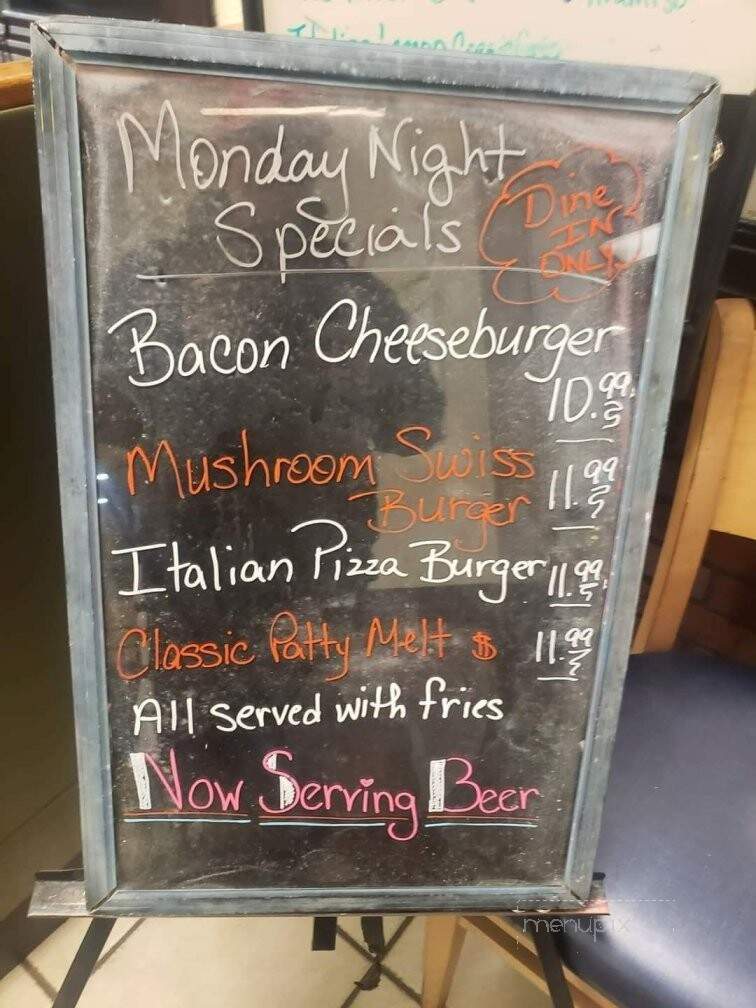 Monday Night
Specials
Dine
IN
ONLY
Bacon Cheeseburger
10.99
Mushroom Swiss
Burger 11.99
Italian Pizza Burger 11.99
Classic Patty Melt $ 11.99
All served with fries
Now Serving Beer
menupix